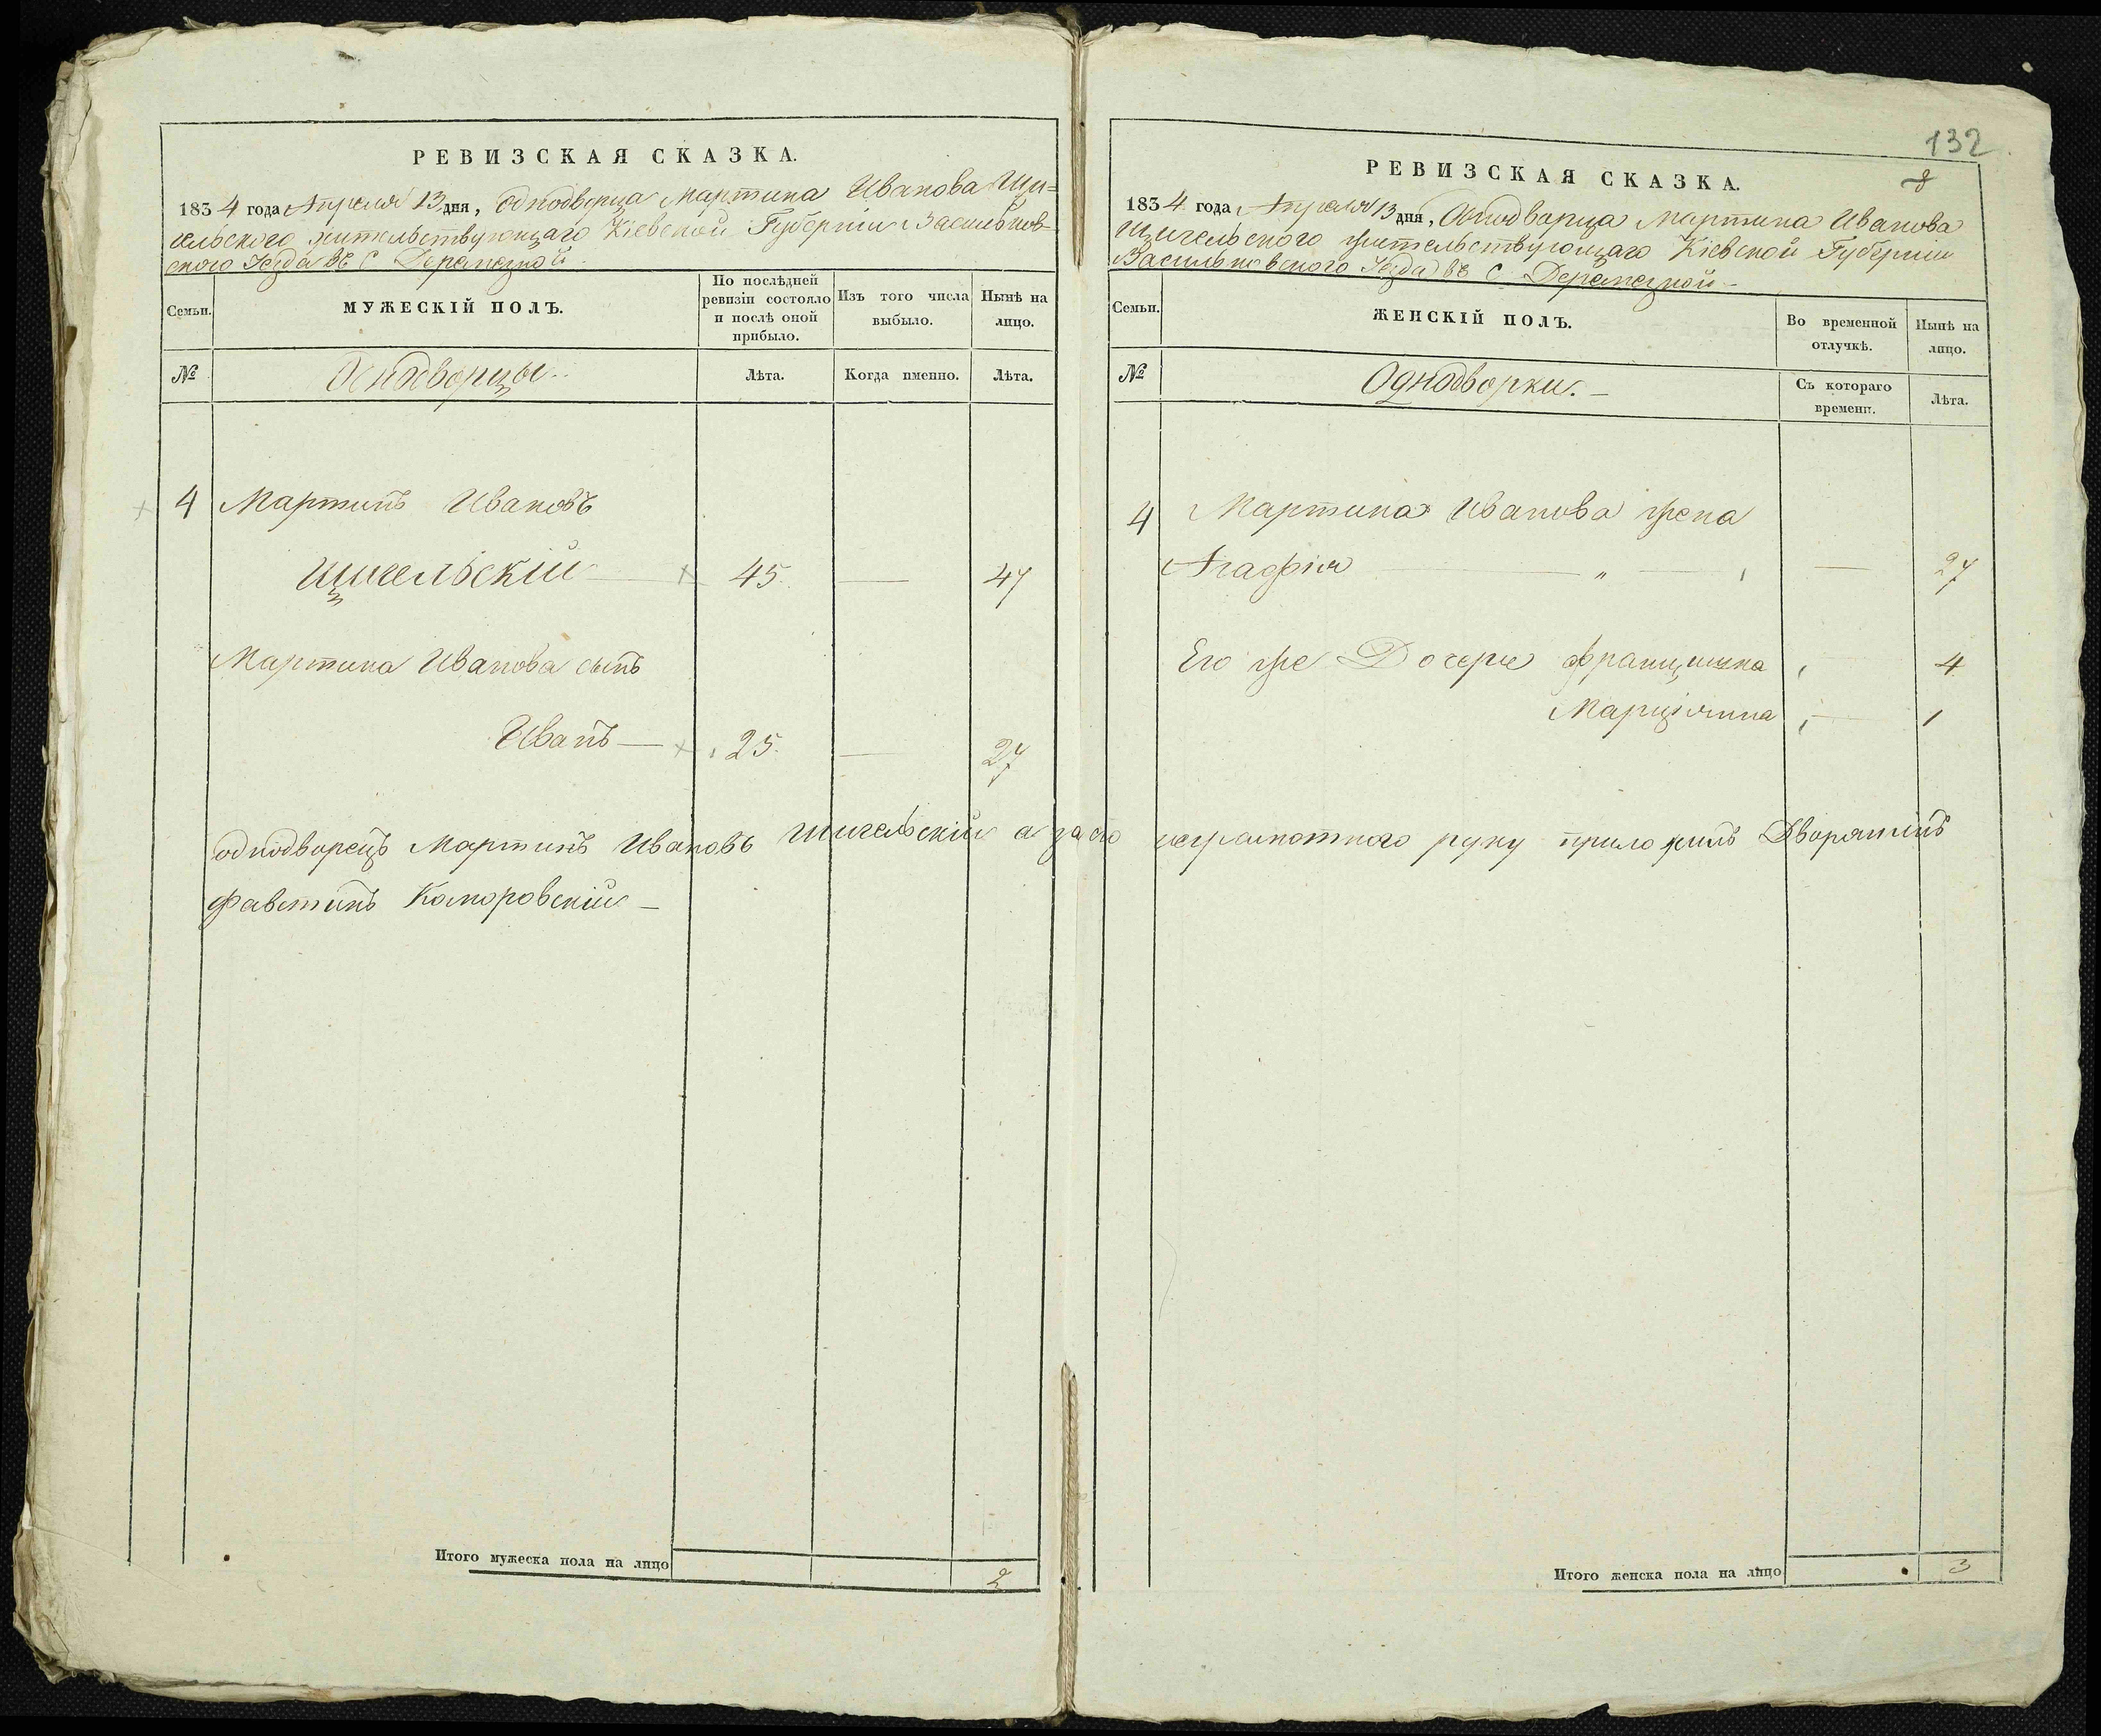 РЕВИЗСКАЯ СКАЗКА.
1834 года Апреля 13 дня, Однодворца Мартина Иванова Щи=
гельского жительствующаго Кіевской Губерніи Васильков-
ского Уезда въ С
Семьи.
МУЖЕСКІЙ ПОЛЪ.
По послѣдней ревизіи состояло и послѣ оной прибыло.
Изъ того числа выбыло.
Нынѣ на лицо.
№
Однодворцы.
Лѣта.
Когда именно.
Лѣта.
4 Мартинъ Ивановъ
Щигельскій 45. — 47
Мартина Ивановa сынъ
Иванъ — 25. — 27
однодворецъ Мартинъ Ивановъ Щигельскій а за его неграмотного руку приложилъ Дворянинъ
Фавстинъ Коморовскій —
Итого мужеска пола на лицо 2
132
8
РЕВИЗСКАЯ СКАЗКА.
1834 года Апреля 13 дня, Однодворца Мартина Иванова
Щигельского жительствующаго Кіевской Губерніи
Васильковского Уезда въ С.
Семьи.
ЖЕНСКІЙ ПОЛЪ.
Во временной отлучкѣ.
Нынѣ на лицо.
№
Однодворки. —
Съ котораго времени.
Лѣта.
4 Мартина Иванова жена
Агафія — „ — — 27
Его же Дочери Францишка 4
Марціянна — 1
Итого женска пола на лицо 3